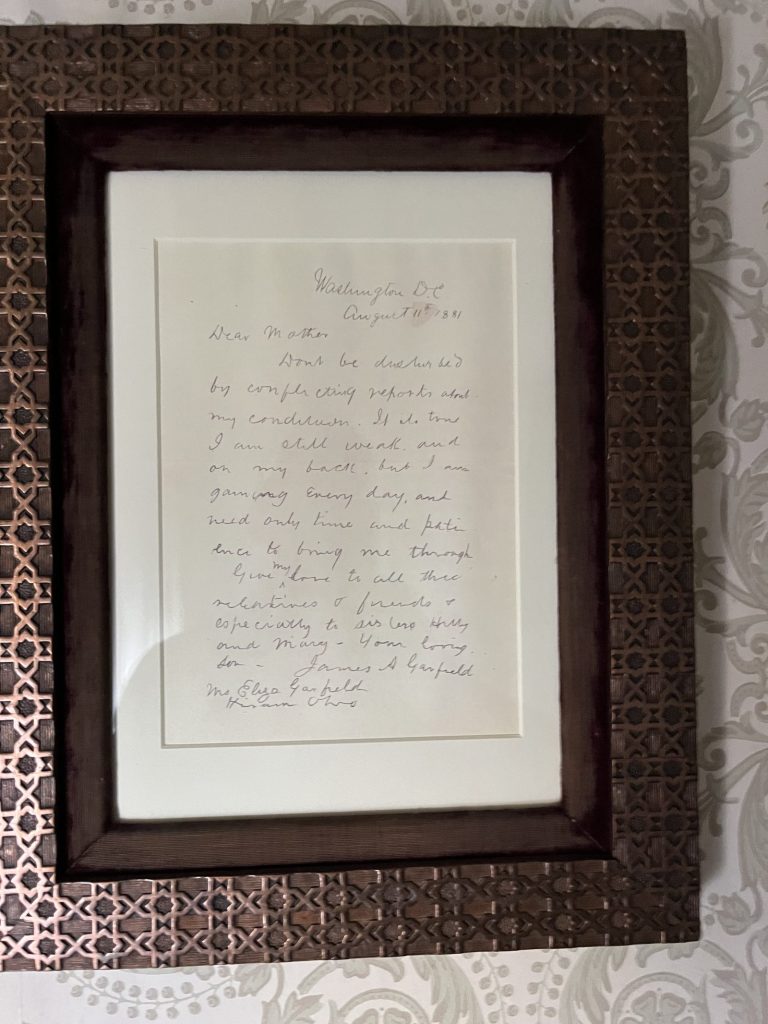 Washington D.C.
August 11th 1881
Dear Mother
Dont be disturbed
by conflicting reports about
my condition. It is true
I am still weak, and
on my back, but I am
gaining every day, and
need only time and pati
ence to bring me through
Give my love to all the
relatives & friends &
especially to sisters Hitty
and Mary - Your loving
son - James A Garfield
Mrs Eliza Garfield
Hiram Ohio